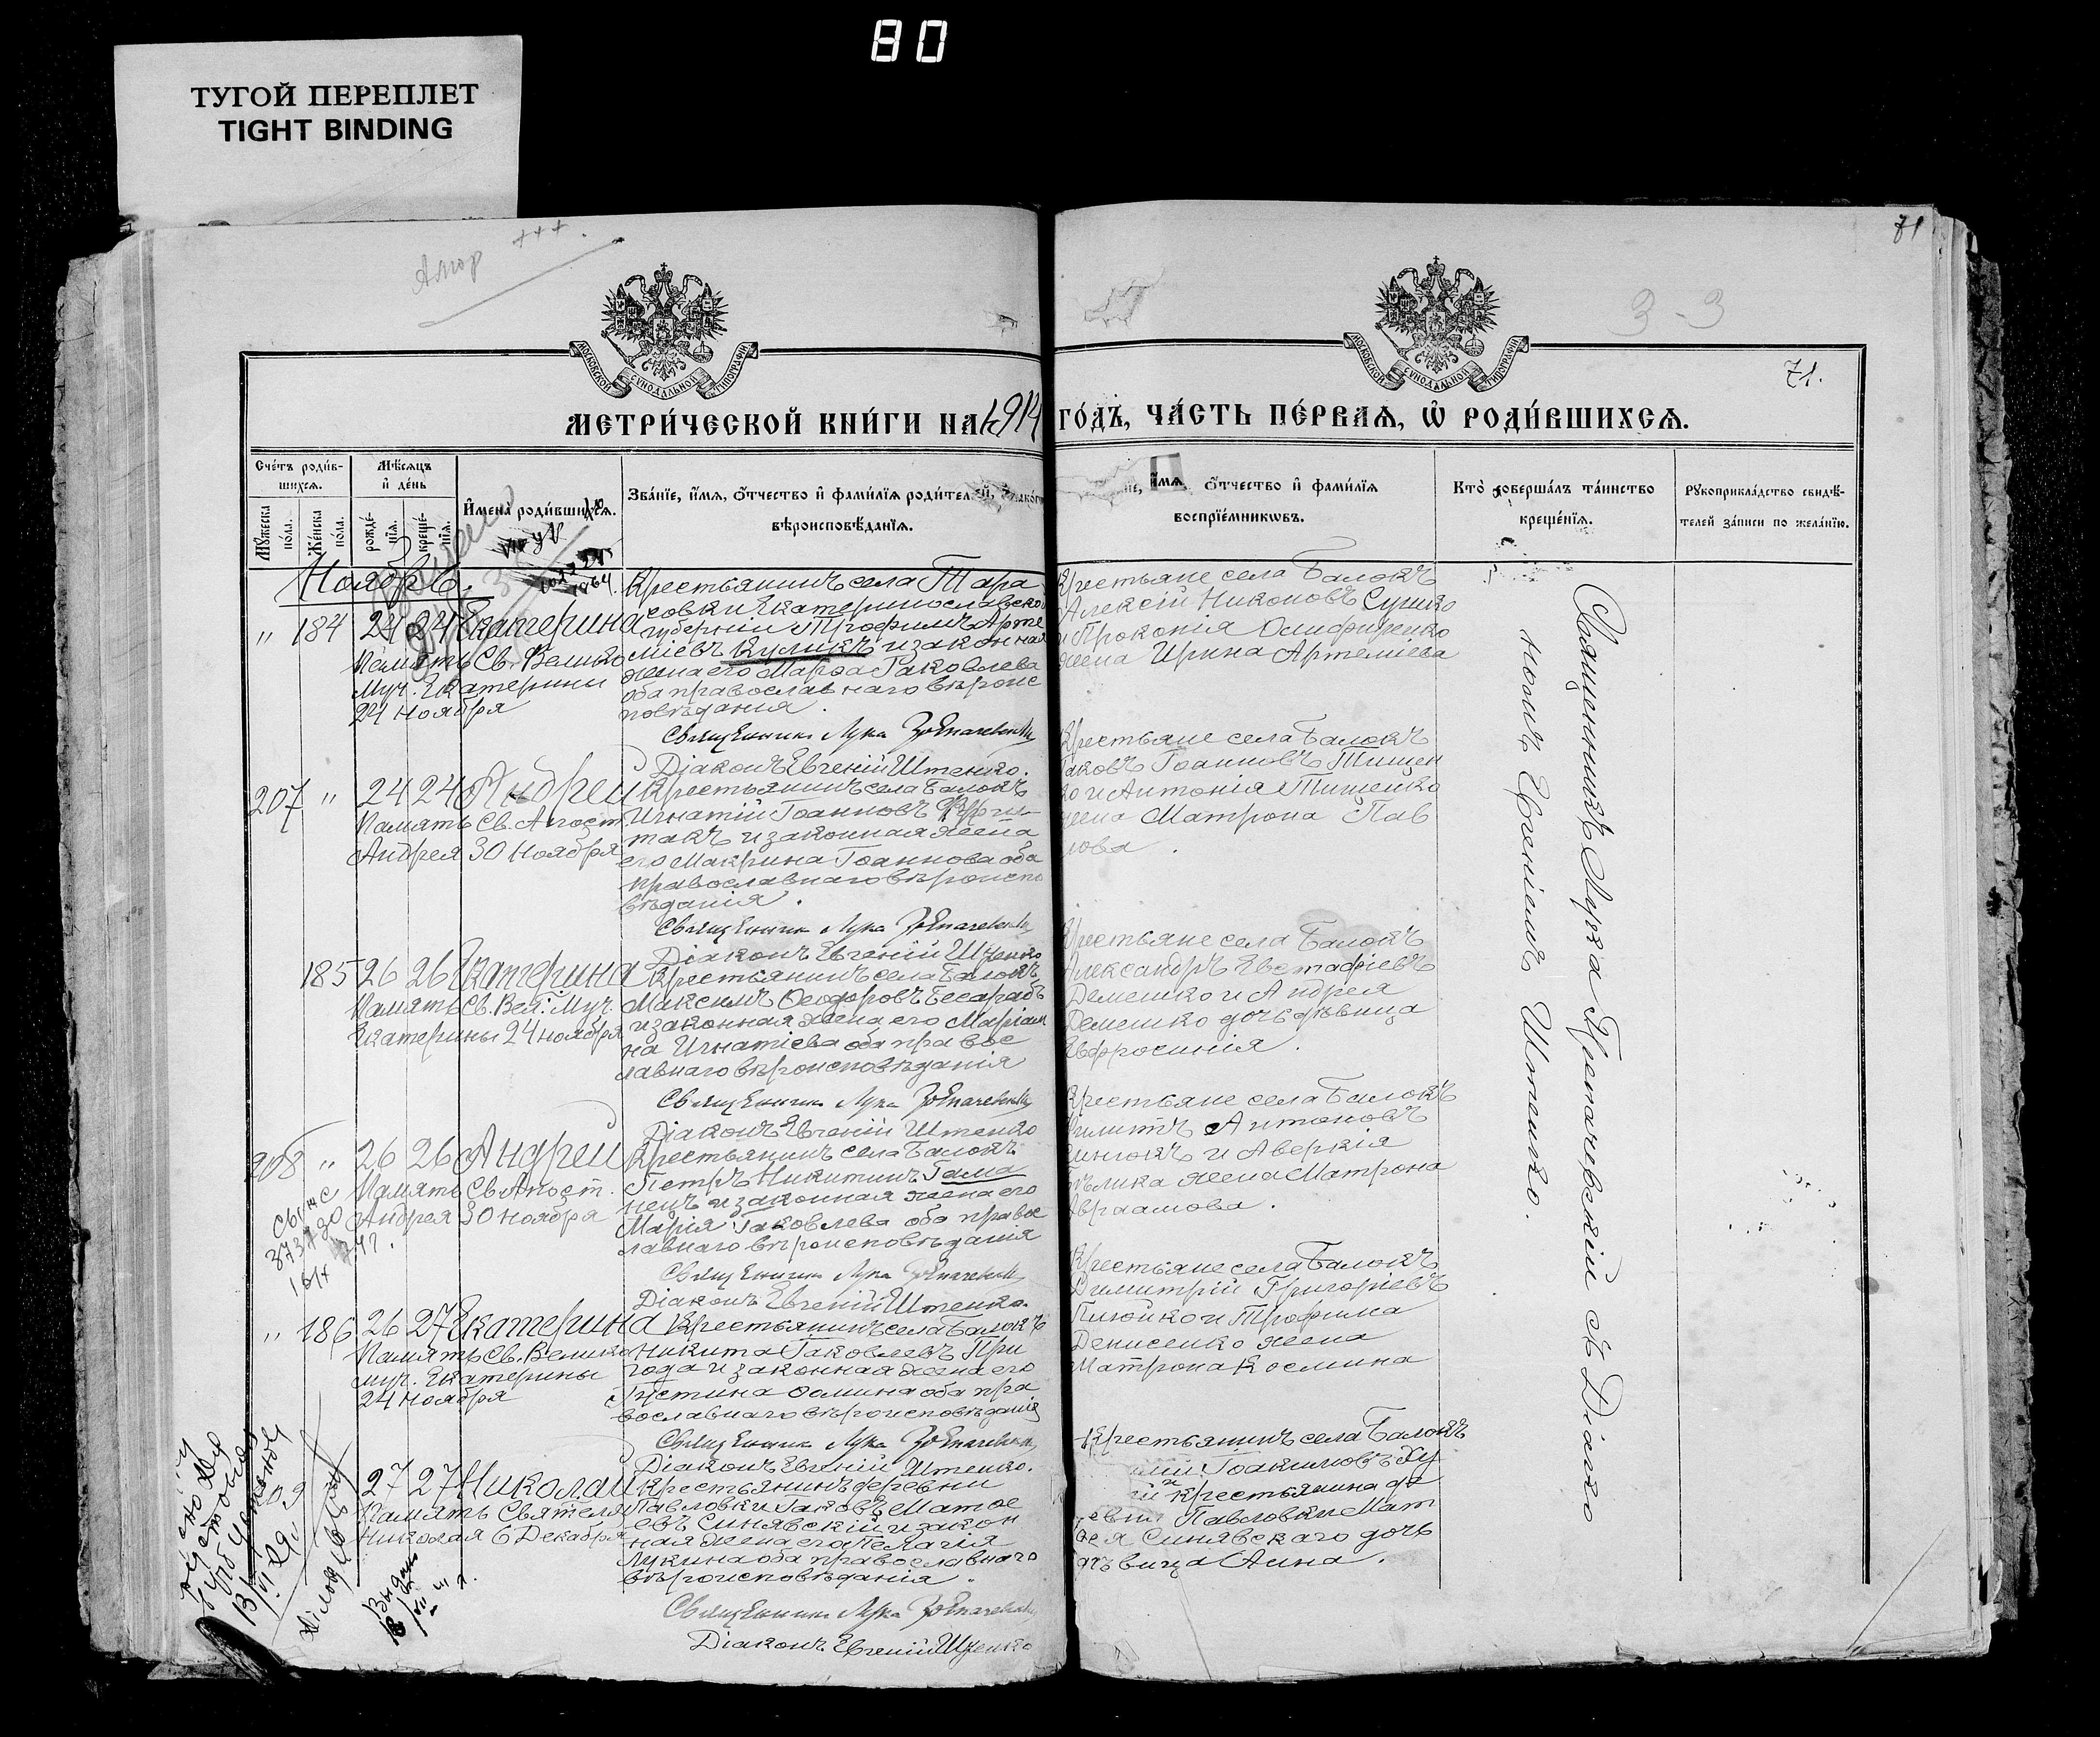 80
ТУГОЙ ПЕРЕПЛЕТ
TIGHT BINDING
71
3-3
71.
МОСКОВСКОЙ СѴНОДАЛЬНОЙ ТИПОГРАФІИ
МОСКОВСКОЙ СѴНОДАЛЬНОЙ ТИПОГРАФІИ
МЕТРИ́ЧЕСКОЙ КНИ́ГИ НА 1914 ГО́ДЪ, ЧА́СТЬ ПЕ́РВАѦ, Ѡ҆ РОДИ́ВШИХСѦ.
Сче́тъ роди́вшихсѧ.
Мꙋ́жеска по́ла.
Же́нска по́ла.
Мѣ́сяцъ и҆ де́нь
рожде́нїѧ.
креще́нїѧ.
И҆мена̀ роди́вшихсѧ.
Зва́нїе, и҆́мѧ, ѻ҆́тчество и҆ фами́лїѧ роди́телей,
вѣроисповѣ́данїѧ.
и҆́мѧ, ѻ҆́тчество и҆ фами́лїѧ
воспрїе́мникѡвъ.
Кто̀ соверша́лъ та́инство
креще́нїѧ.
Рꙋкоприкла́дство свидѣ́-
телей за́писи по жела́нїю.
Ноябрь.
" 184 24 24 Екатерина
Память Св. Велико
Муч. Екатерины
24 Ноября
Крестьянинъ села Тара
совки Екатеринославской
губерніи Трофимъ Арте
міевъ Куликъ и законная
жена его Марѳа Іаковлева
оба православнаго вѣроис
повѣданія.
Священникъ Лука
Діаконъ Евгеній Штенко.
Крестьяне села Балокъ
Алексій Никоновъ Сушко
и Прокопія Онифиренко
жена Ирина Артеміева
207 " 24 24 Андрей
Память Св. Апост.
Андрея 30 Ноября
Крестьянинъ села Балокъ
Игнатій Іоанновъ
такъ и законная жена
его Макрина Іоаннова оба
православнаго вѣроиспо
вѣданія.
Священникъ Лука
Діаконъ Евгеній Штенко
Крестьяне села Балокъ
Іаковъ Іоанновъ Тищен
ко и Антонія Тищенко
жена Матрона Пав
лова.
185 26 26 Екатерина
Память Св. Вел. Муч.
Екатерины 24 Ноября
Крестьянинъ села Балокъ
Максимъ Ѳеодоровъ Бесарабъ
и законная жена его Маріам
на Игнатіева оба правос
лавнаго вѣроисповѣданія
Священникъ Лука
Діаконъ Евгеній Штенко
Крестьяне села Балокъ
Александръ Евстафіевъ
Демешко и Андрея
Демешко дочь дѣвица
Евфросинія.
208 " 26 26 Андрей
Память Св. Апост.
Андрея 30 Ноября
Крестьянинъ села Балокъ
Петръ Никитинъ Гама
нецъ и законная жена его
Марія Іаковлева оба правос
лавнаго вѣроисповѣданія
Священникъ Лука
Діаконъ Евгеній Штенко.
Крестьяне села Балокъ
Филиппъ Антоновъ
и Аверкія
Бѣлика жена Матрона
Авраамова.
" 186 26 27 Екатерина
Память Св. Велико
муч. Екатерины
24 Ноября
Крестьянинъ села Балокъ
Никита Іаковлевъ При
года и законная жена его
Іустина Ѳомина оба пра
вославнаго вѣроисповѣданія
Священникъ Лука
Діаконъ Евгеній Штенко.
Крестьяне села Балокъ
Димитрій Григоріевъ
и Трофима
Денисенко жена
Матрона Космина
27 27 Николай
Память Святителя
Николая 6 Декабря
Крестьянинъ деревни
Павловки Іаковъ Матѳе
евъ Синявскій и закон
ная жена его Пелагія
Лукина оба православнаго
вѣроисповѣданія.
Священникъ Лука
Діаконъ Евгеній Штенко
Крестьянинъ села Балокъ
Іоакимовъ
и крестьянина де
ревни Павловки Мат
ѳея Синявскаго дочь
дѣвица Анна.
Священникъ Лука съ Діако
номъ Евгеніемъ Штенко.